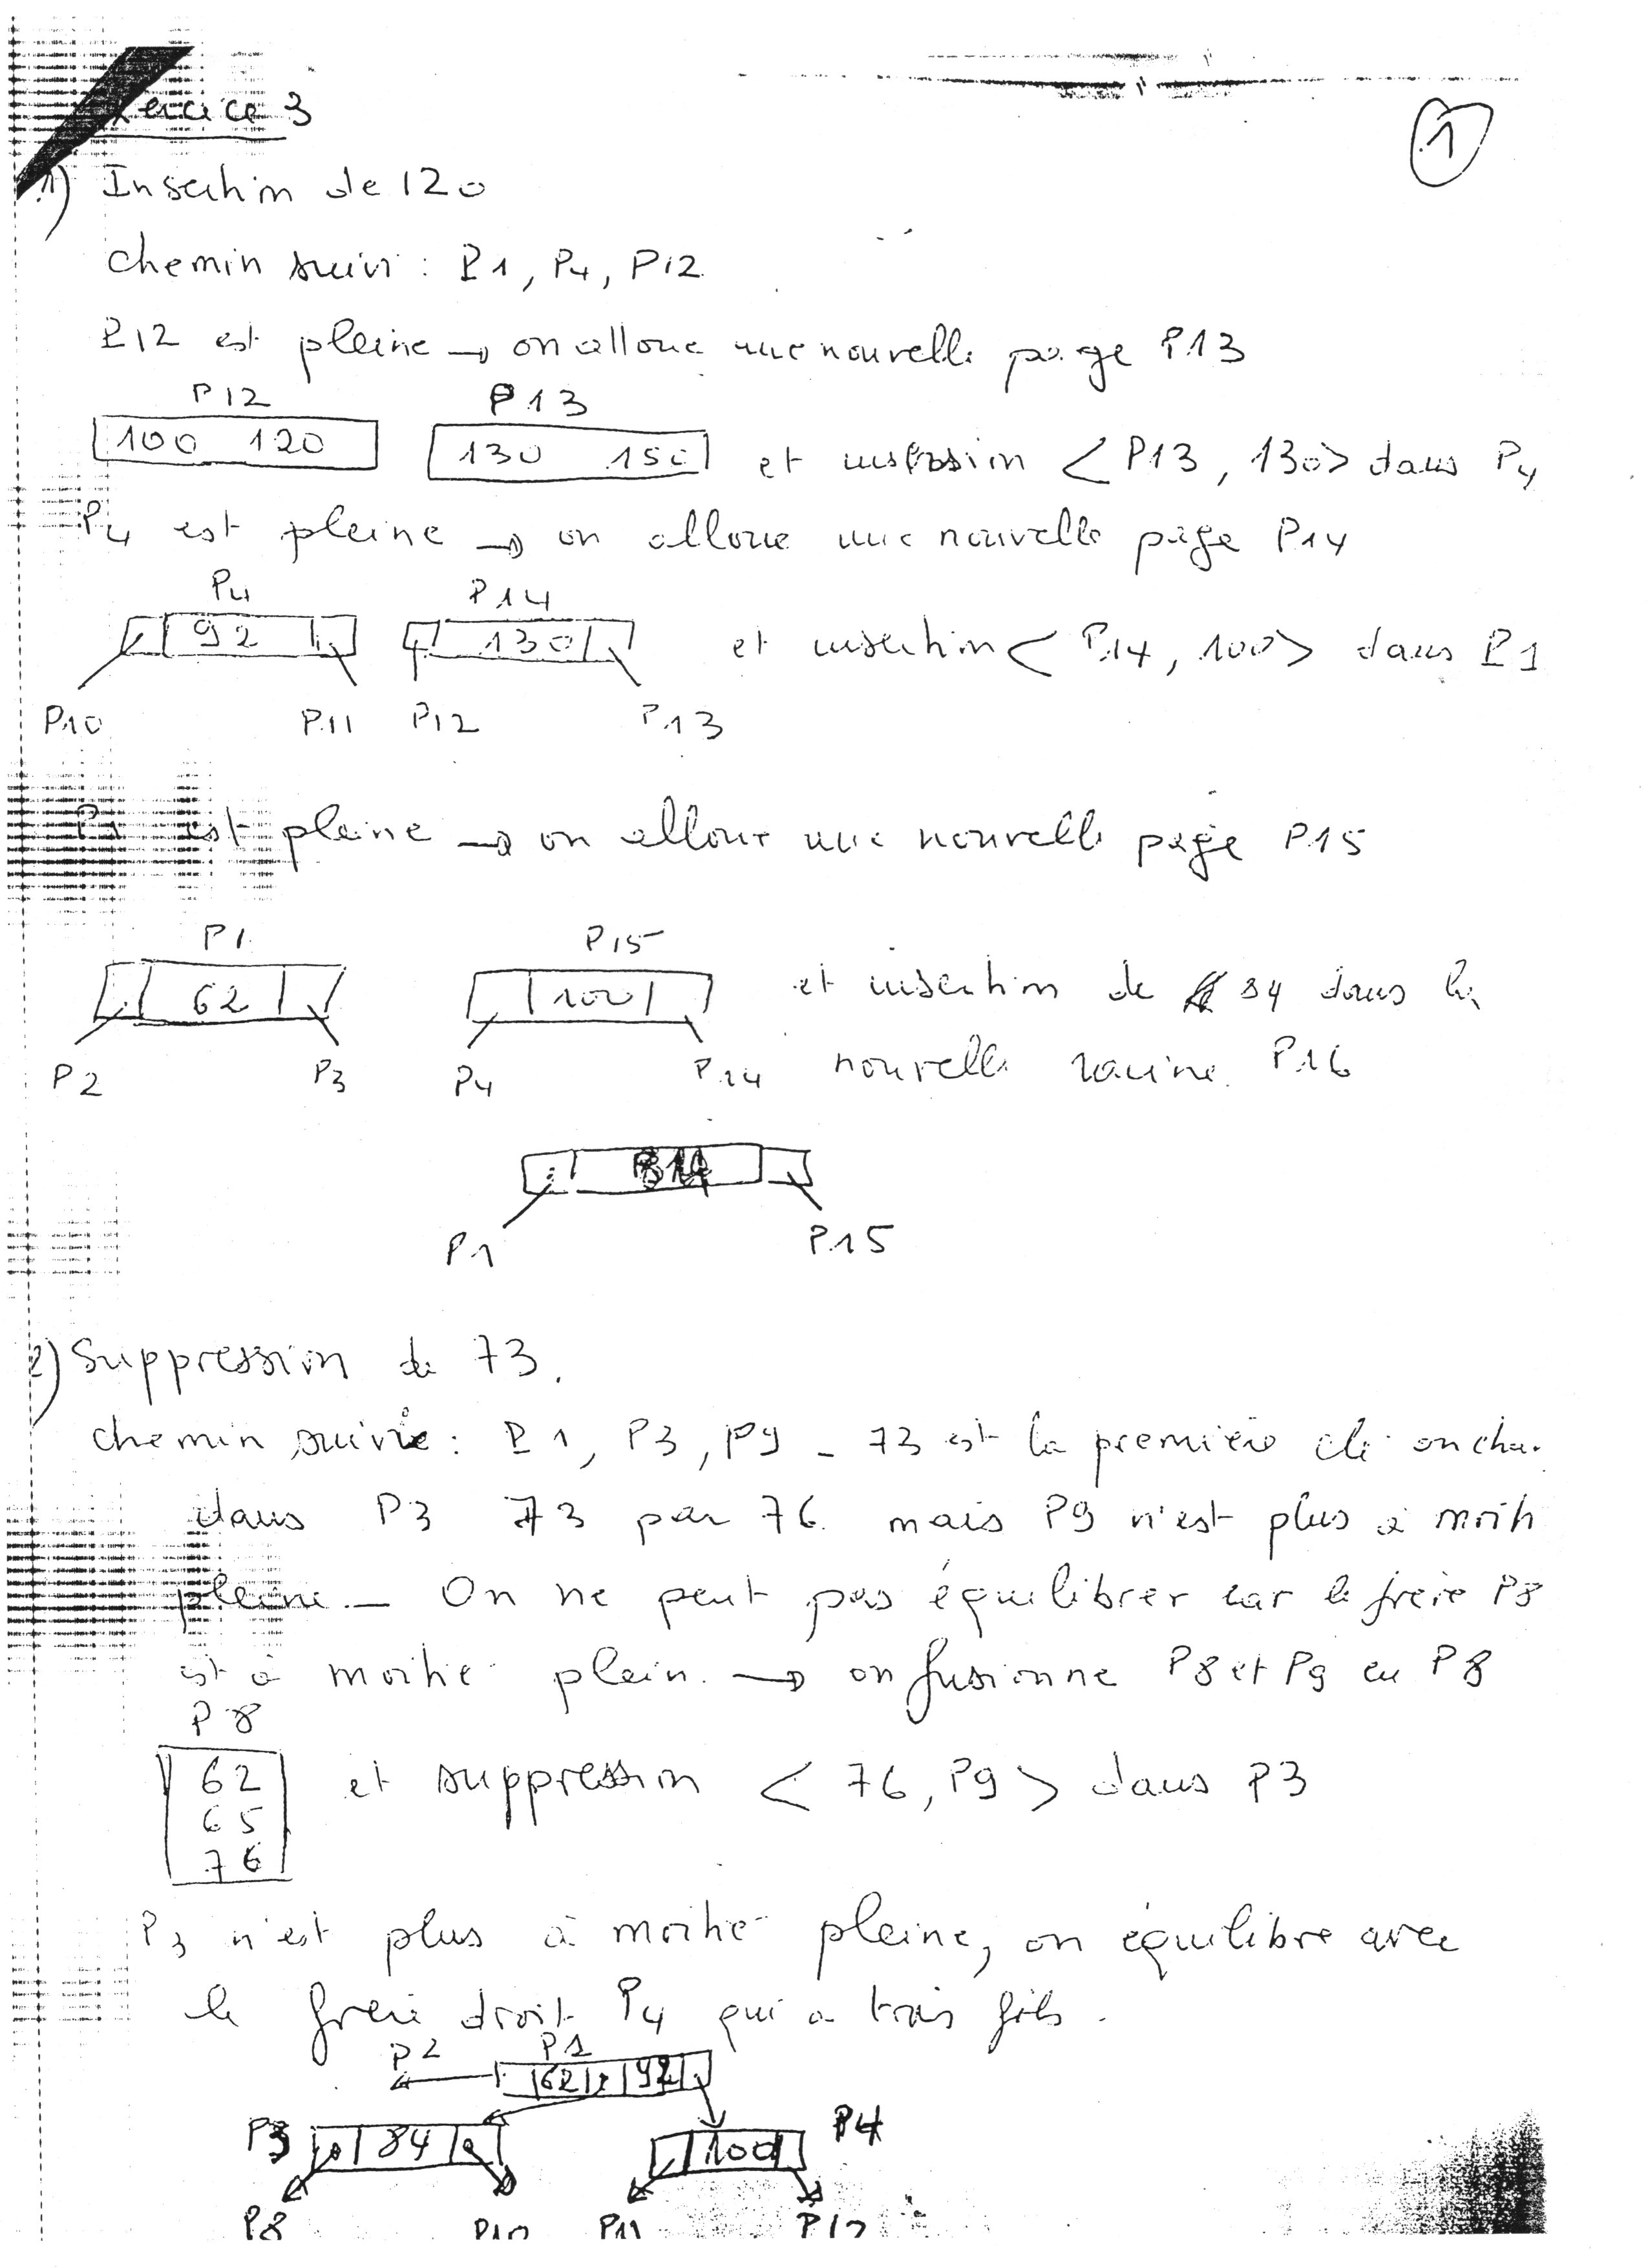 exercice 3
1
1) Insertion de 120
chemin suivi : P1, P4, P12
P12 est pleine → on alloue une nouvelle page P13
P12 P13
100 120 130 150 et insertion < P13, 130> dans P4
P4 est pleine → on alloue une nouvelle page P14
P4 P14
92 130 et insertion < P14, 100> dans P1
P10 P11 P12 P13
P1 est pleine → on alloue une nouvelle page P15
P1 P15
62 100 et insertion de 84 dans la
P2 P3 P4 P14 nouvelle racine P16
P1 P15
2) Suppression de 73.
chemin suivie : P1, P3, P9 - 73 est la première clé on cha.
dans P3 73 par 76 mais P9 n'est plus à moiti
pleine - On ne peut pas équilibrer car le frère P8
est à moitié plein. → on fusionne P8 et P9 en P8
P8
62 et suppression < 76, P9 > dans P3
65
76
P3 n'est plus à moitié pleine, on équilibre avec
le frère droit P4 qui a trois fils.
P2 P1
62 92
P3 84 100 P4
P8 P10 P11 P12